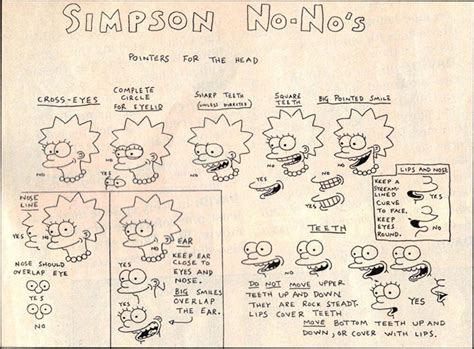 SIMPSON NO-NO'S
POINTERS FOR THE HEAD
CROSS-EYES
COMPLETE
CIRCLE
FOR EYELID
SHARP TEETH
(UNLESS DIRECTED)
SQUARE
TEETH
BIG POINTED SMILE
NO
NO
NO
NO
NO
NO
NO
YES
YES
LIPS AND NOSE
KEEP A
STREAM-
LINED
CURVE
TO FACE.
KEEP
EYES
ROUND.
NO
YES
NOSE
LINE
YES
NO
NOSE SHOULD
OVERLAP EYE
YES
YES
NO
YES
NO
NO
YES
EAR
KEEP EAR
CLOSE TO
EYES AND
NOSE.
BIG SMILES
OVERLAP
THE EAR.
TEETH
YES
NO
NO
YES
DO NOT MOVE UPPER
TEETH UP AND DOWN
THEY ARE ROCK STEADY.
LIPS COVER TEETH
MOVE BOTTOM TEETH UP AND
DOWN, OR COVER WITH LIPS.